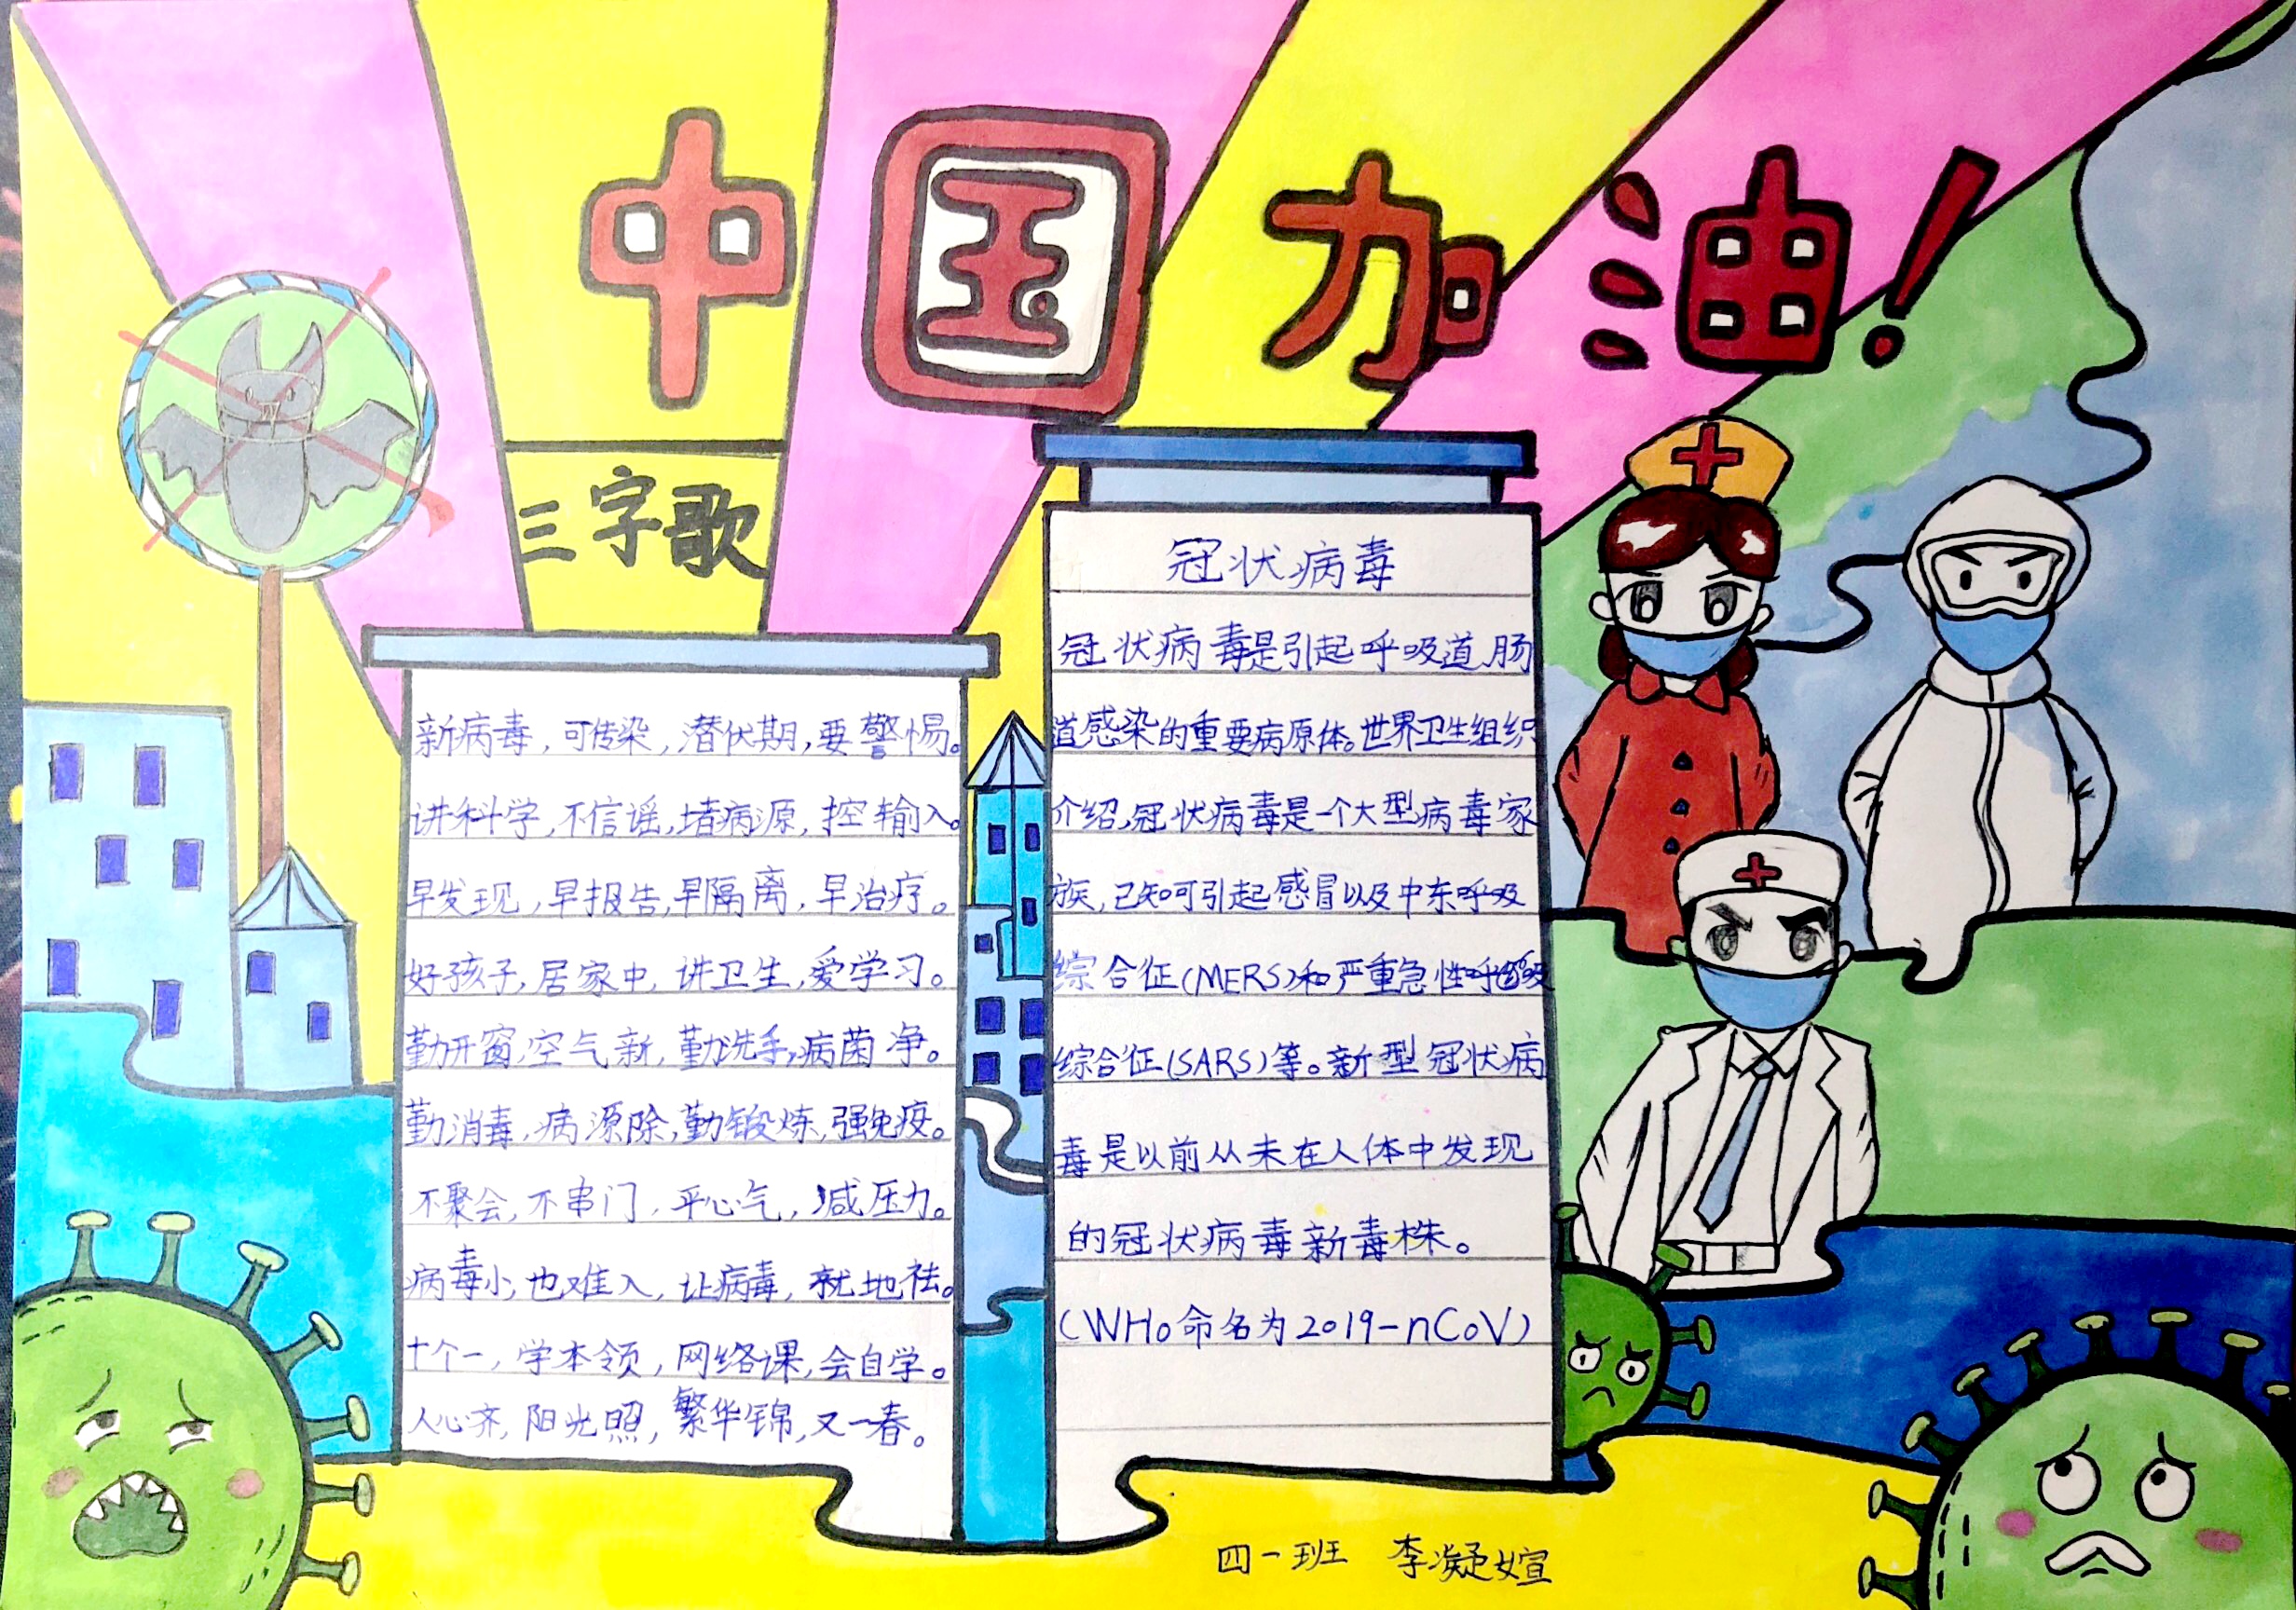 中国加油！
三字歌
新病毒，可传染，潜伏期，要警惕。
讲科学，不信谣，堵病源，控输入。
早发现，早报告，早隔离，早治疗。
好孩子，居家中，讲卫生，爱学习。
勤开窗，空气新，勤洗手，病菌净。
勤消毒，病源除，勤锻炼，强免疫。
不聚会，不串门，平心气，减压力。
病毒小，也难入，让病毒，就地祛。
十个一，学本领，网络课，会自学。
人心齐，阳光照，繁华锦，又一春。
冠状病毒
冠状病毒是引起呼吸道、肠
道感染的重要病原体。世界卫生组织
介绍，冠状病毒是一个大型病毒家
族，已知可引起感冒以及中东呼吸
综合征(MERS)和严重急性呼吸
综合征(SARS)等。新型冠状病
毒是以前从未在人体中发现
的冠状病毒新毒株。
(WHo命名为2019-nCoV)
四一班 李凝媗